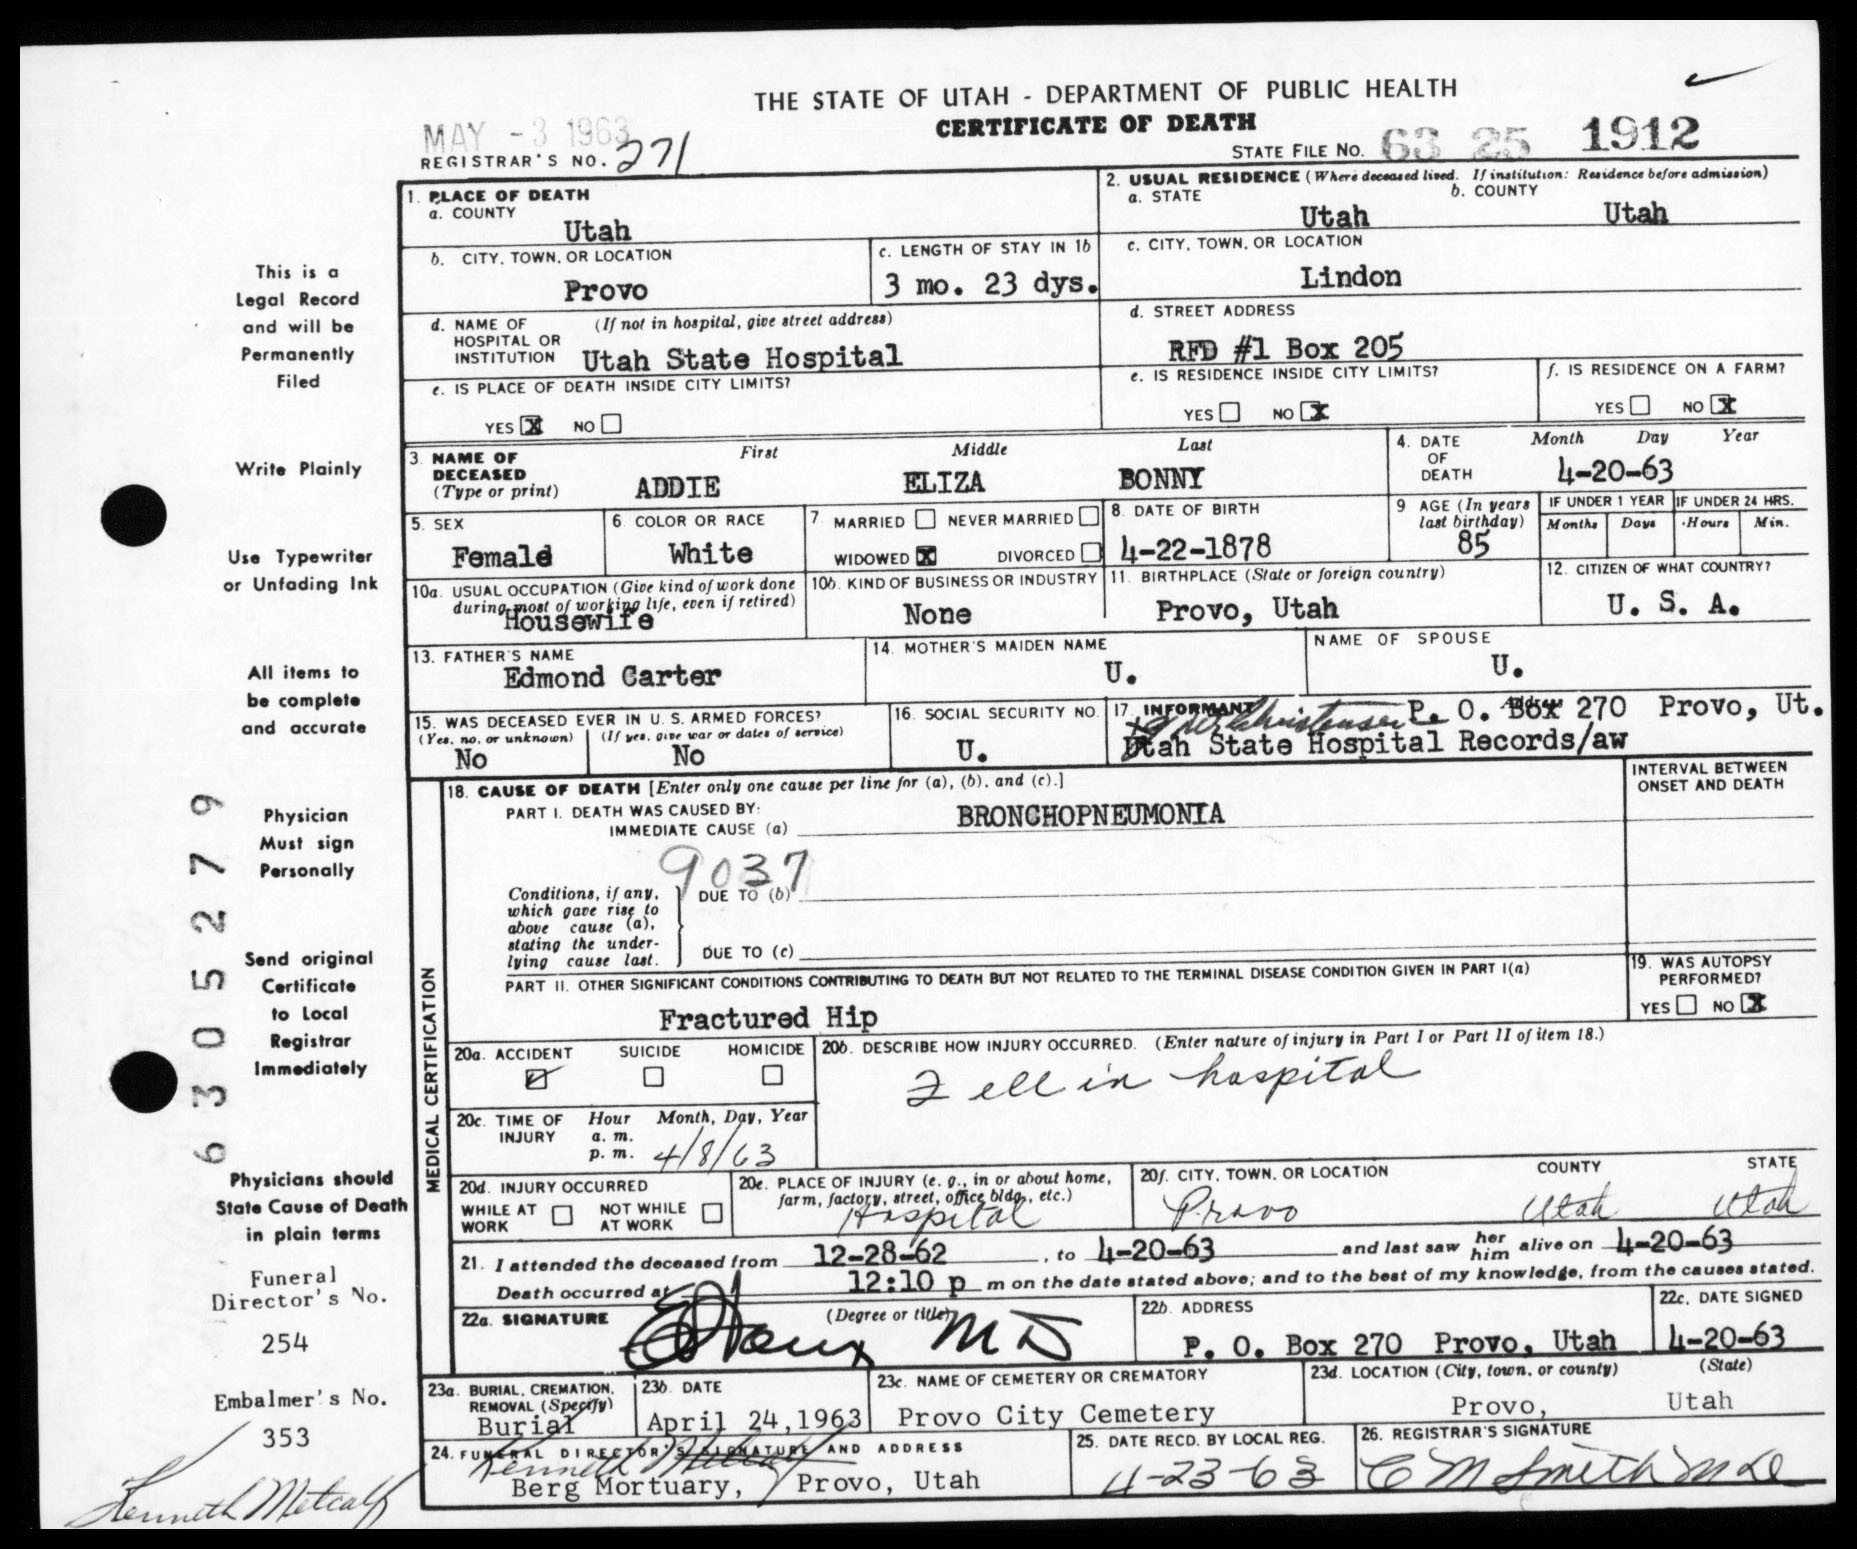 THE STATE OF UTAH - DEPARTMENT OF PUBLIC HEALTH
CERTIFICATE OF DEATH
MAY -3 1963
REGISTRAR'S NO. 271
STATE FILE NO. 63 25 1912
1. PLACE OF DEATH
a. COUNTY
Utah
2. USUAL RESIDENCE (Where deceased lived. If institution: Residence before admission)
a. STATE
Utah
b. COUNTY
Utah
b. CITY, TOWN, OR LOCATION
Provo
c. LENGTH OF STAY IN 1b
3 mo. 23 dys.
c. CITY, TOWN, OR LOCATION
Lindon
d. NAME OF HOSPITAL OR INSTITUTION
(If not in hospital, give street address)
Utah State Hospital
d. STREET ADDRESS
RFD #1 Box 205
e. IS PLACE OF DEATH INSIDE CITY LIMITS?
YES X NO
e. IS RESIDENCE INSIDE CITY LIMITS?
YES NO X
f. IS RESIDENCE ON A FARM?
YES NO X
3. NAME OF DECEASED
(Type or print)
First Middle Last
ADDIE ELIZA BONNY
4. DATE OF DEATH
Month Day Year
4-20-63
5. SEX
Female
6. COLOR OR RACE
White
7. MARRIED NEVER MARRIED
WIDOWED X DIVORCED
8. DATE OF BIRTH
4-22-1878
9 AGE (In years last birthday)
85
IF UNDER 1 YEAR
Months Days
IF UNDER 24 HRS.
Hours Min.
10a. USUAL OCCUPATION (Give kind of work done
during most of working life, even if retired)
Housewife
10b. KIND OF BUSINESS OR INDUSTRY
None
11. BIRTHPLACE (State or foreign country)
Provo, Utah
12. CITIZEN OF WHAT COUNTRY?
U. S. A.
13. FATHER'S NAME
Edmond Carter
14. MOTHER'S MAIDEN NAME
U.
NAME OF SPOUSE
U.
15. WAS DECEASED EVER IN U. S. ARMED FORCES?
(Yes, no, or unknown) (If yes, give war or dates of service)
No No
16. SOCIAL SECURITY NO.
U.
17. INFORMANT Address
Christensen P. O. Box 270 Provo, Ut.
Utah State Hospital Records/aw
MEDICAL CERTIFICATION
18. CAUSE OF DEATH [Enter only one cause per line for (a), (b), and (c).]
INTERVAL BETWEEN ONSET AND DEATH
PART I. DEATH WAS CAUSED BY:
IMMEDIATE CAUSE (a) BRONCHOPNEUMONIA
9037
Conditions, if any,
which gave rise to
above cause (a),
stating the under-
lying cause last.
DUE TO (b)
DUE TO (c)
PART II. OTHER SIGNIFICANT CONDITIONS CONTRIBUTING TO DEATH BUT NOT RELATED TO THE TERMINAL DISEASE CONDITION GIVEN IN PART I(a)
Fractured Hip
19. WAS AUTOPSY PERFORMED?
YES NO X
20a. ACCIDENT SUICIDE HOMICIDE
20b. DESCRIBE HOW INJURY OCCURRED. (Enter nature of injury in Part I or Part II of item 18.)
Fell in hospital
20c. TIME OF INJURY
Hour Month, Day, Year
a. m.
p. m. 4/8/63
20d. INJURY OCCURRED
WHILE AT WORK NOT WHILE AT WORK
20e. PLACE OF INJURY (e. g., in or about home,
farm, factory, street, office bldg., etc.)
Hospital
20f. CITY, TOWN, OR LOCATION COUNTY STATE
Provo Utah Utah
21. I attended the deceased from 12-28-62, to 4-20-63 and last saw her him alive on 4-20-63
Death occurred at 12:10 p m on the date stated above; and to the best of my knowledge, from the causes stated.
22a. SIGNATURE (Degree or title)
M D
22b. ADDRESS
P. O. Box 270 Provo, Utah
22c. DATE SIGNED
4-20-63
23a. BURIAL, CREMATION, REMOVAL (Specify)
Burial
23b. DATE
April 24,1963
23c. NAME OF CEMETERY OR CREMATORY
Provo City Cemetery
23d. LOCATION (City, town, or county) (State)
Provo, Utah
24. FUNERAL DIRECTOR'S SIGNATURE AND ADDRESS
Kenneth Metcalf
Berg Mortuary, Provo, Utah
25. DATE RECD. BY LOCAL REG.
4-23-63
26. REGISTRAR'S SIGNATURE
C M Smith MD
This is a
Legal Record
and will be
Permanently
Filed
Write Plainly
Use Typewriter
or Unfading Ink
All items to
be complete
and accurate
Physician
Must sign
Personally
Send original
Certificate
to Local
Registrar
Immediately
Physicians should
State Cause of Death
in plain terms
Funeral
Director's No.
254
Embalmer's No.
353
Kenneth Metcalf
6305279